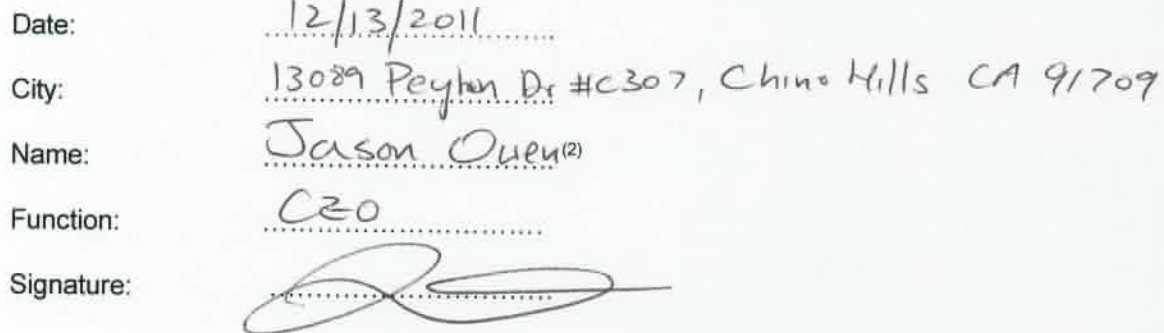 Date: 12/13/2011
City: 13089 Peyton Dr #C307, Chino Hills CA 91709
Name: Jason Owen(2)
Function: CEO
Signature: